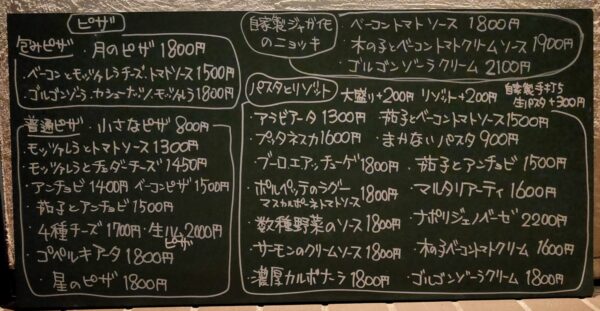 ピザ
包みピザ 月のピザ 1800円
・ベーコンとモッツァレラチーズ、トマトソース 1500円
・ゴルゴンゾーラ、カシューナッツ、モッツァレラ 1800円
普通ピザ ・小さなピザ 800円
モッツァレラとトマトソース 1300円
・モッツァレラとチェダーチーズ 1450円
・アンチョビ 1400円 ベーコンピザ 1500円
・茄子とアンチョビ 1500円
・4種チーズ 1700円 ・生ハムピザ 2000円
・コペルキアータ 1800円
・星のピザ 1800円
自家製ジャガイモのニョッキ
・ベーコントマトソース 1800円
・木の子とベーコントマトクリームソース 1900円
・ゴルゴンゾーラクリーム 2100円
パスタとリゾット 大盛り+200円 リゾット+200円 自家製手打ち生パスタ+300円
・アラビアータ 1300円 ・茄子とベーコントマトソース 1500円
・プッタネスカ 1600円 ・まかないパスタ 900円
・ブーロエアッチューゲ 1800円 ・茄子とアンチョビ 1500円
・ポルペッテのラグーマスカルポーネトマトソース 1800円 ・マルタリアーティ 1600円
・数種野菜のソース 1800円 ナポリジェノベーゼ 2200円
・サーモンのクリームソース 1800円 ・木の子ベーコントマトクリーム 1600円
・濃厚カルボナーラ 1800円 ・ゴルゴンゾーラクリーム 1800円